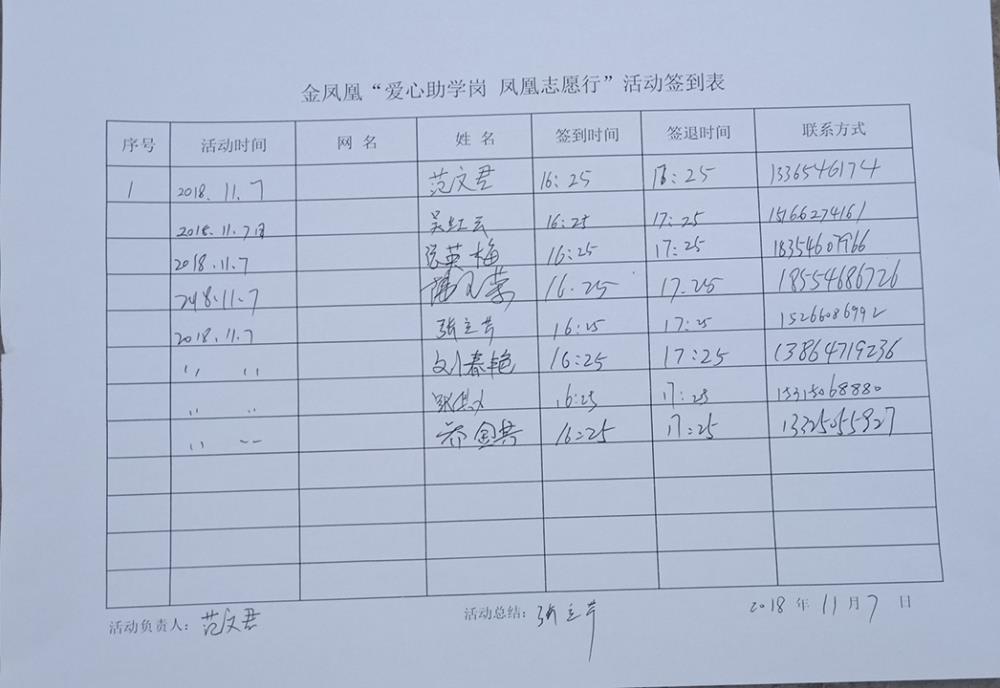 金凤凰“爱心助学岗 凤凰志愿行”活动签到表
序号 活动时间 网 名 姓 名 签到时间 签退时间 联系方式
1 2018.11.7 范文君 16:25 18:25 13365646174
2018.11.7日 吴红云 16:25 17:25 15166274161
2018.11.7 英梅 16:25 17:25 18354607966
2018.11.7 16.25 17.25 18554686726
2018.11.7 张立芹 16:25 17:25 15266086992
〃 〃 刘春艳 16:25 17:25 13864719236
〃 〃 16:25 17:25 15315068880
〃 〃 16:25 17:25 13325055927
活动负责人: 范文君 活动总结: 张立芹 2018 年 11 月 7 日